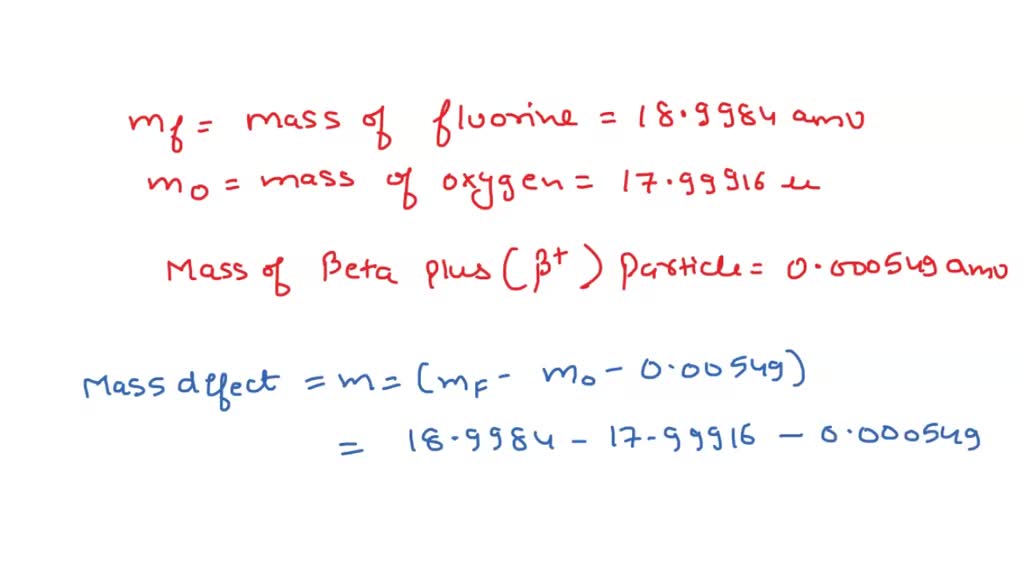 mf = mass of fluorine = 18.9984 amu
mo = mass of oxygen = 17.99916 u
Mass of Beta plus (β+) Particle = 0.000549 amu
Mass dffect = m = (mF - mo - 0.00549)
= 18.9984 - 17.99916 - 0.000549